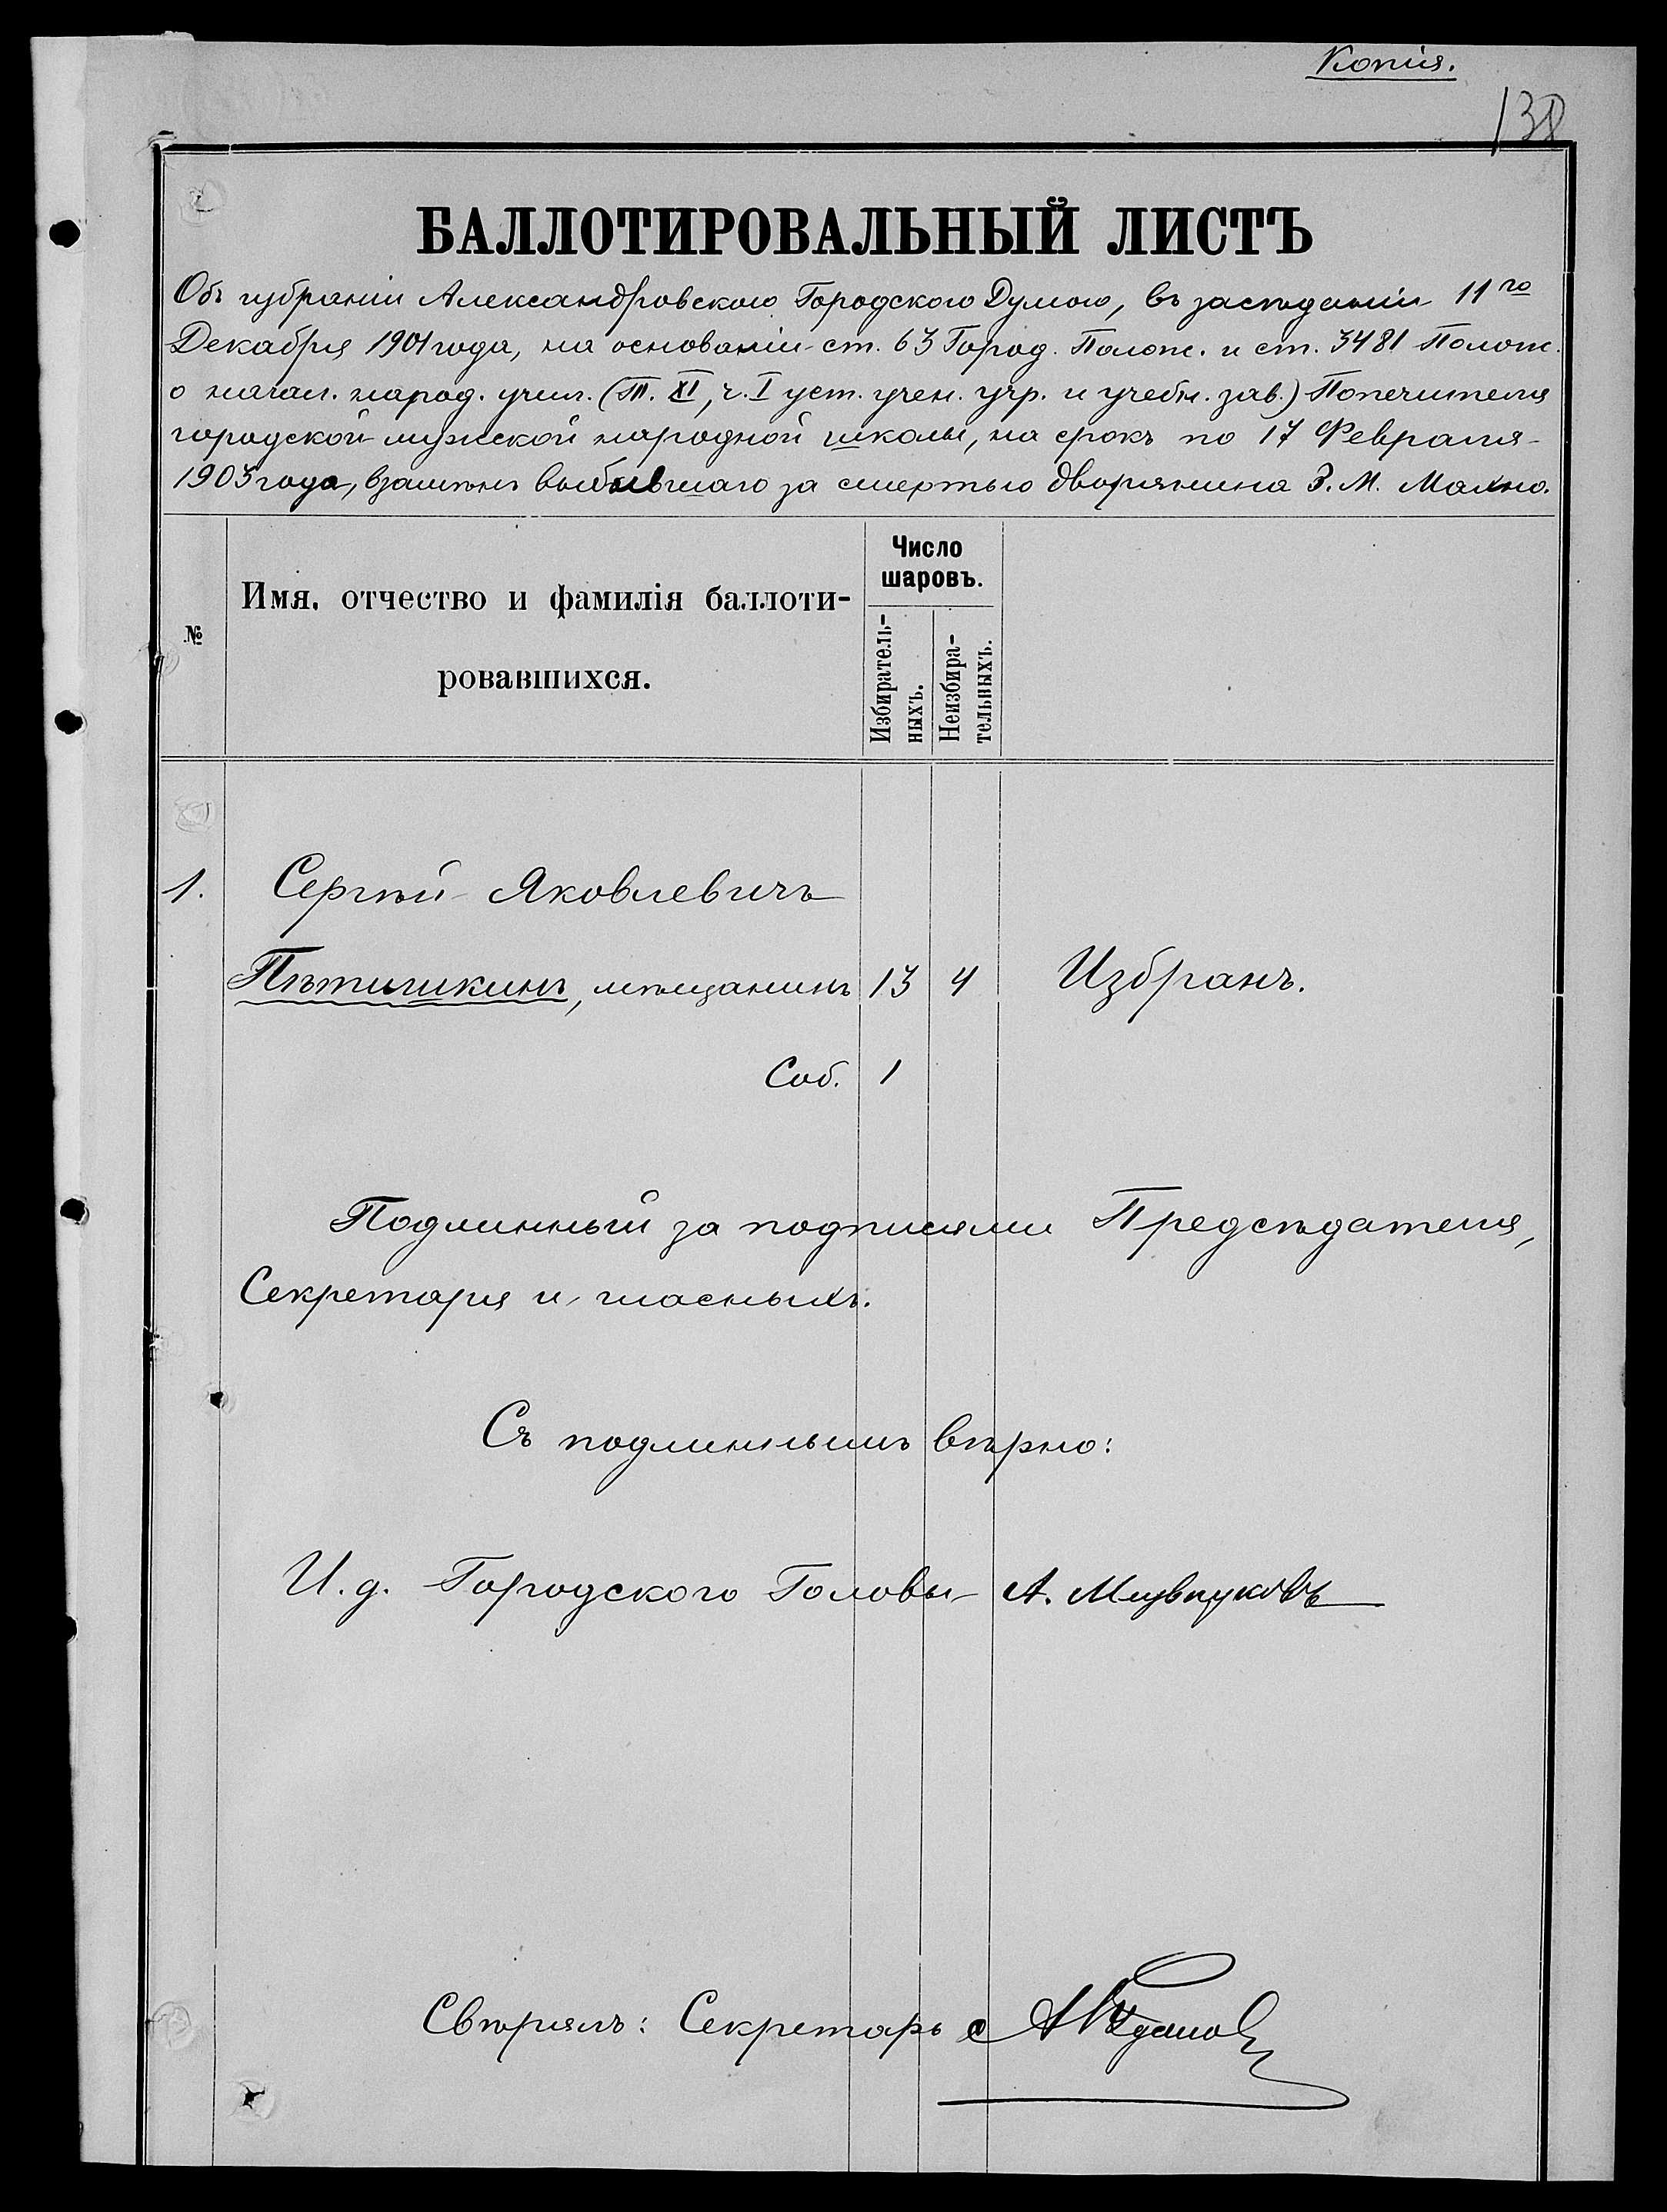 Копія.
138
БАЛЛОТИРОВАЛЬНЫЙ ЛИСТЪ
Объ избраніи Александровскою Городскою Думою, въ засѣданіи 11го
Декабря 1901 года, на основаніи ст. 63 Город. Полож. и ст. 3481 Полож.
о начал. народ. учил. (Т. XI, ч. I уст. учен. учр. и учебн. зав.) Попечителя
городской мужской народной школы, на срокъ по 17 Февраля
1903 года, взамѣнъ выбывшаго за смертью дворянина З. М. Махно.
№
Имя, отчество и фамилія баллоти-
ровавшихся.
Число
шаровъ.
Избиратель-
ныхъ.
Неизбира-
тельныхъ.
1. Сергѣй Яковлевичъ
Пѣтишкинъ, мѣщанинъ 13 4 Избранъ.
Соб. 1
Подлинный за подписями Предсѣдателя,
Секретаря и гласныхъ.
Съ подлиннымъ вѣрно:
И. д. Городского Головы А.
Свѣрялъ: Секретарь